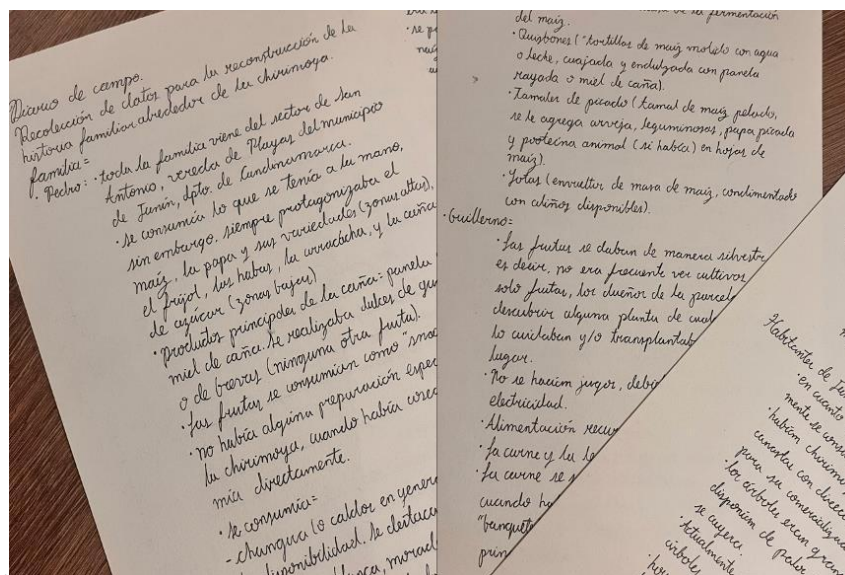 Diario de campo.
Recolección de datos para la reconstrucción de la
historia familiar alrededor de la chirimoya.
familia=
· Pedro: · toda la familia viene del sector de San
Antonio, vereda de Playas del municipio
de Junín, dpto. de Cundinamarca.
· se consumía lo que se tenía a la mano,
sin embargo, siempre protagonizaba el
maíz, la papa y sus variedades (zonas altas),
el frijol, las habas, la arracacha, y la caña
de azúcar (zonas bajas)
· productos principales de la caña= panela
miel de caña. Se realizaba dulces de
o de brevas (ninguna otra fruta).
· Las frutas se consumían como "snac
· no había alguna preparación espec
la chirimoya, cuando había cosec
mía directamente.
· se consumía=
- changua (o caldos en genera
disponibilidad. Se destaca
morad
del maíz.
· Quisbones ("tortillas de maíz molido con agua
o leche, cuajada y endulzada con panela
rayada o miel de caña).
· Tamales de picado (tamal de maíz pelado,
se le agrega arveja, leguminosas, papa picada
y proteína animal (si había) en hojas de
maíz).
· Jotas (envueltos de masa de maíz, condimentado
con aliños disponibles).
· Guillermo=
· Las frutas se daban de manera silvestre
es decir, no era frecuente ver cultivos
solo frutas, los dueños de la parcela
descubrir alguna planta de cual
lo cuidaban y/o transplantab
lugar.
· No se hacían jugos, debid
electricidad.
· Alimentación recur
· La carne y la le
· La carne se s
cuando ha
"banquete
prin
Habitantes de Jun
· en cuanto
mente se consu
· habían chirimo
canastas con direcc
para su comercializac
· los árboles eran gran
disponían de palos
se cayera.
· Actualmente
árboles